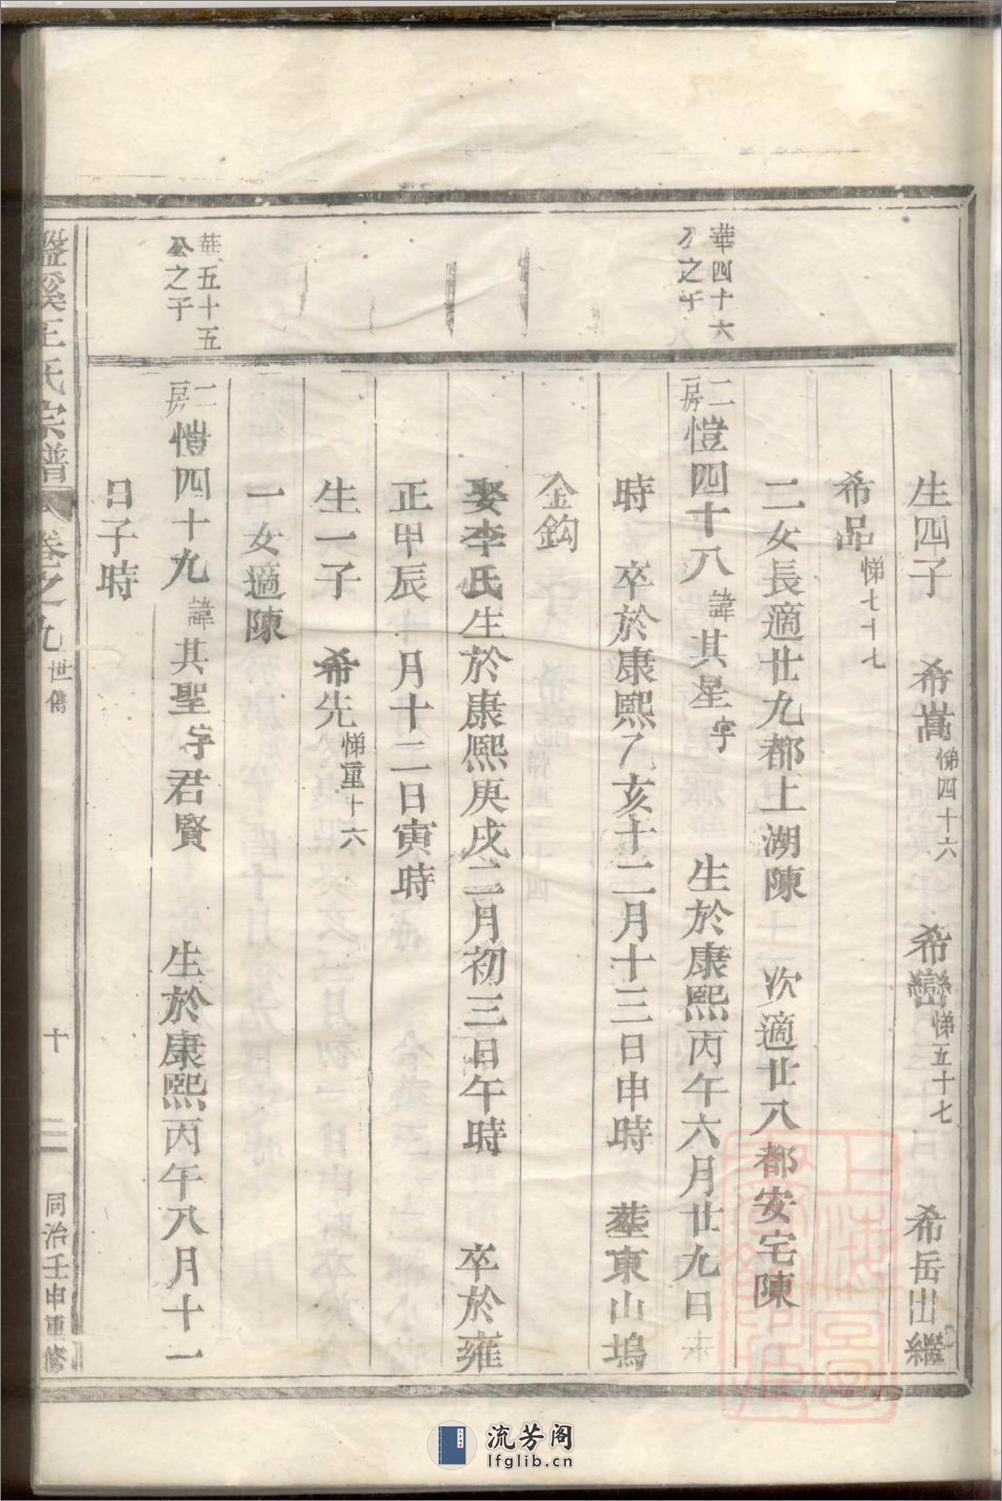 生四子 希嵩悌四十六 希巒悌五十七 希岳出繼
希品悌七十七
二女長適廿九都上湖陳 次適廿八都安宅陳
華四十六
公之子
二房愷四十八諱其星字 生於康熙丙午六月廿九日未
時 卒於康熙乙亥十二月十三日申時 塟東山塢
金鈎
娶李氏生於康熙庚戌二月初三日午時 卒於雍
正甲辰十月十二日寅時
生一子 希先悌重十六
一女適陳
華五十五
公之子
二房愷四十九諱其聖字君賢 生於康熙丙午八月十一
日子時
盤溪王氏宗譜 卷之九 世傳 十二 同治壬申重修
上海圖書館藏
流芳阁
lfglib.cn